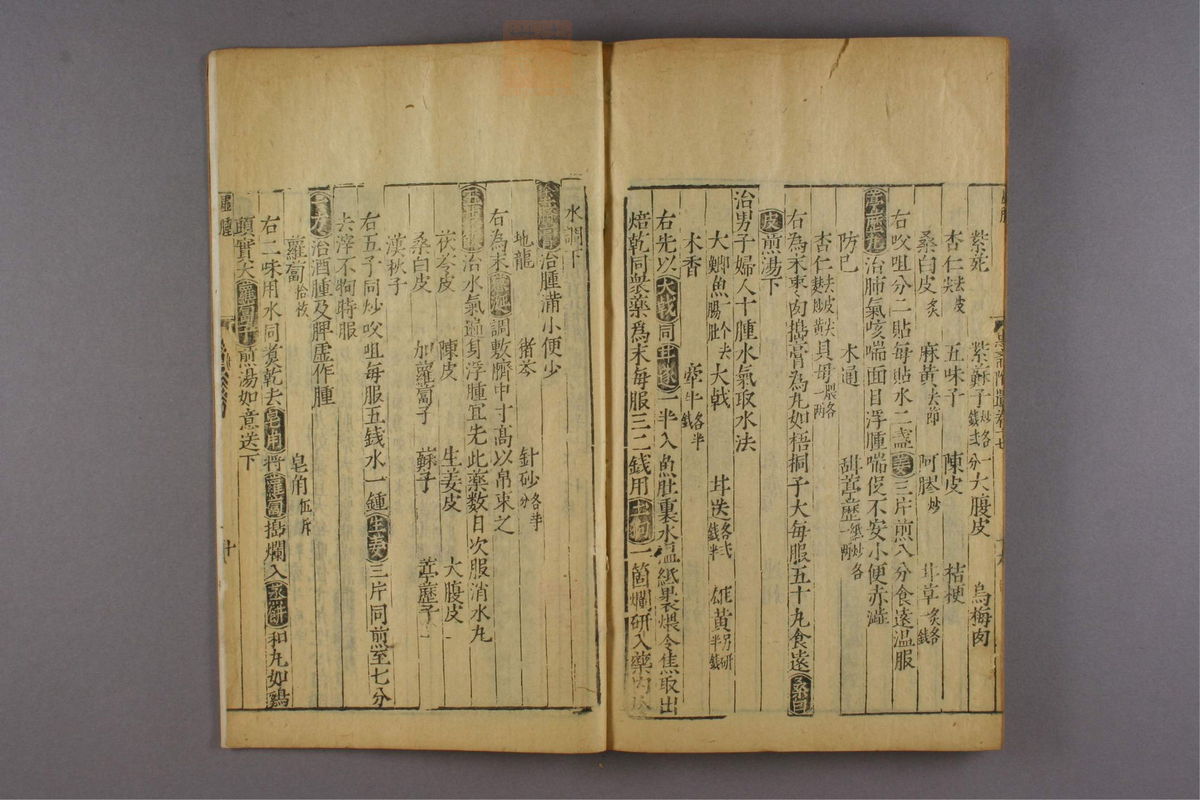 紫菀　紫蘇子炒各一錢弍分　大腹皮　烏梅肉
杏仁去皮　五味子　陳皮　桔梗
桑白皮炙　麻黃去節　阿膠炒　甘草炙各錢
右㕮咀分二貼每貼水二盞姜三片煎八分食遠溫服
葶藶丸治肺氣咳喘面目浮腫喘促不安小便赤澁
防已　木通　甜葶歷紙炒各一兩
杏仁麸炒去皮尖　貝母煨各一兩
右為末棗肉搗膏為丸如梧桐子大每服五十九食遠桑白
皮煎湯下
治男子婦人十腫水氣取水法
大鯽魚一个去腸肚　大戟　甘遂各弍錢半　雄黃另研半錢
木香　牽牛各半錢
右先以大戟同甘遂一半入魚肚裏水溫紙裹煨令焦取出
焙乾同衆藥為末每服三二錢用土狗一箇爛研入藥內
水調下
治腫滿小便少
地龍　猪苓　針砂各等分
右為末調敷臍中寸高以帛束之
治水氣遍身浮腫宜先此藥數日次服消水丸
茯苓皮　陳皮　生姜皮　大腹皮
桑白皮　加蘿蔔子　蘇子　葶藶子
漢椒子
右五子同炒㕮咀每服五錢水一鍾生姜三片同煎至七分
去滓不拘時服
一方治酒腫及脾虛作腫
蘿蔔拾枚　皂角伍斤
右二味用水同煑乾去皂角將蘿蔔搗爛入蒸餅和丸如鷄
頭實大蘿蔔子煎湯如意送下